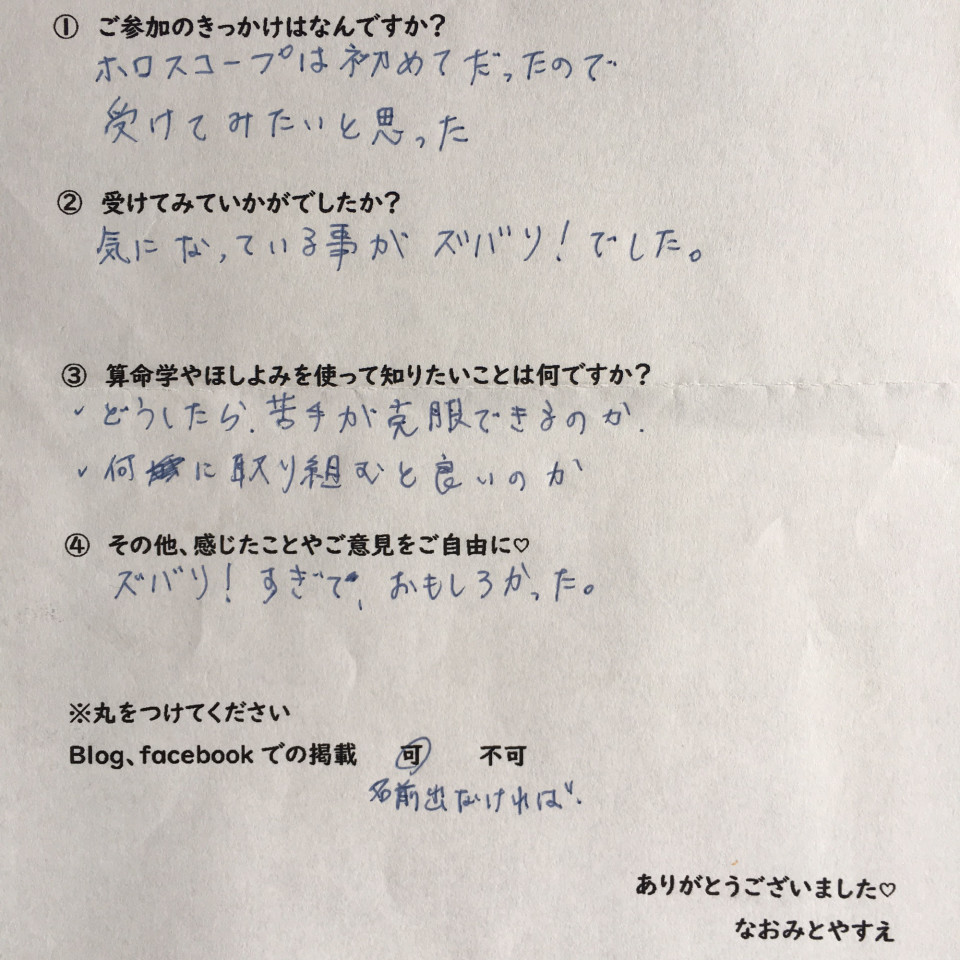 ① ご参加のきっかけはなんですか?
ホロスコープは初めてだったので
受けてみたいと思った
② 受けてみていかがでしたか?
気になっている事がズバリ!でした。
③ 算命学やほしよみを使って知りたいことは何ですか?
✓ どうしたら、苦手が克服できるのか.
✓ 何に取り組むと良いのか
④ その他、感じたことやご意見をご自由に♡
ズバリ!すぎで、おもしろかった。
※丸をつけてください
Blog、facebook での掲載 可 不可
名前出なければ.
ありがとうございました♡
なおみとやすえ